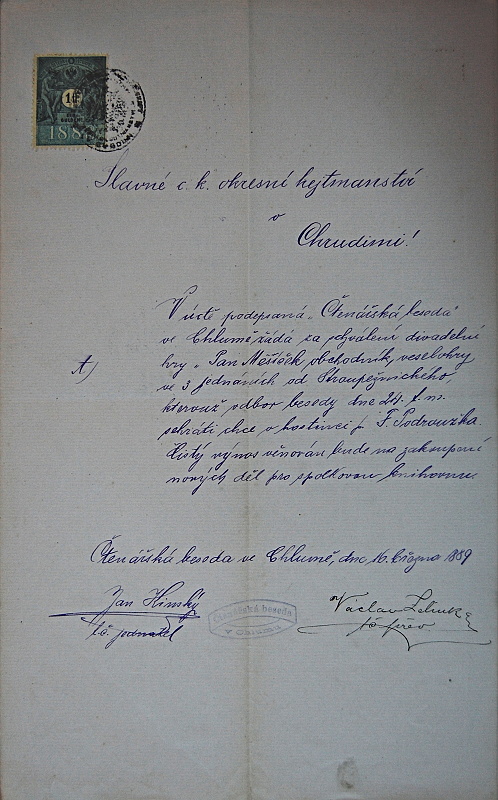 188
Slavné c. k. okresní hejtmanství
v
Chrudimi!
V úctě podepsaná „Čtenářská beseda"
ve Chlumě, žádá za schválení divadelní
hry „Pan Měšíček, obchodník, veselohry
ve 3 jednáních od Stroupežnického,
kterouž odbor besedy dne 24. t. m.
sehráti chce v hostinci p. F.
Čistý výnos věnován bude na zakoupení
nových děl pro spolkovou knihovnu
Čtenářská beseda ve Chlumě, dne 16. března 1889
Jan
t. č. jednatel
Čtenářská beseda
v Chlumu
Václav